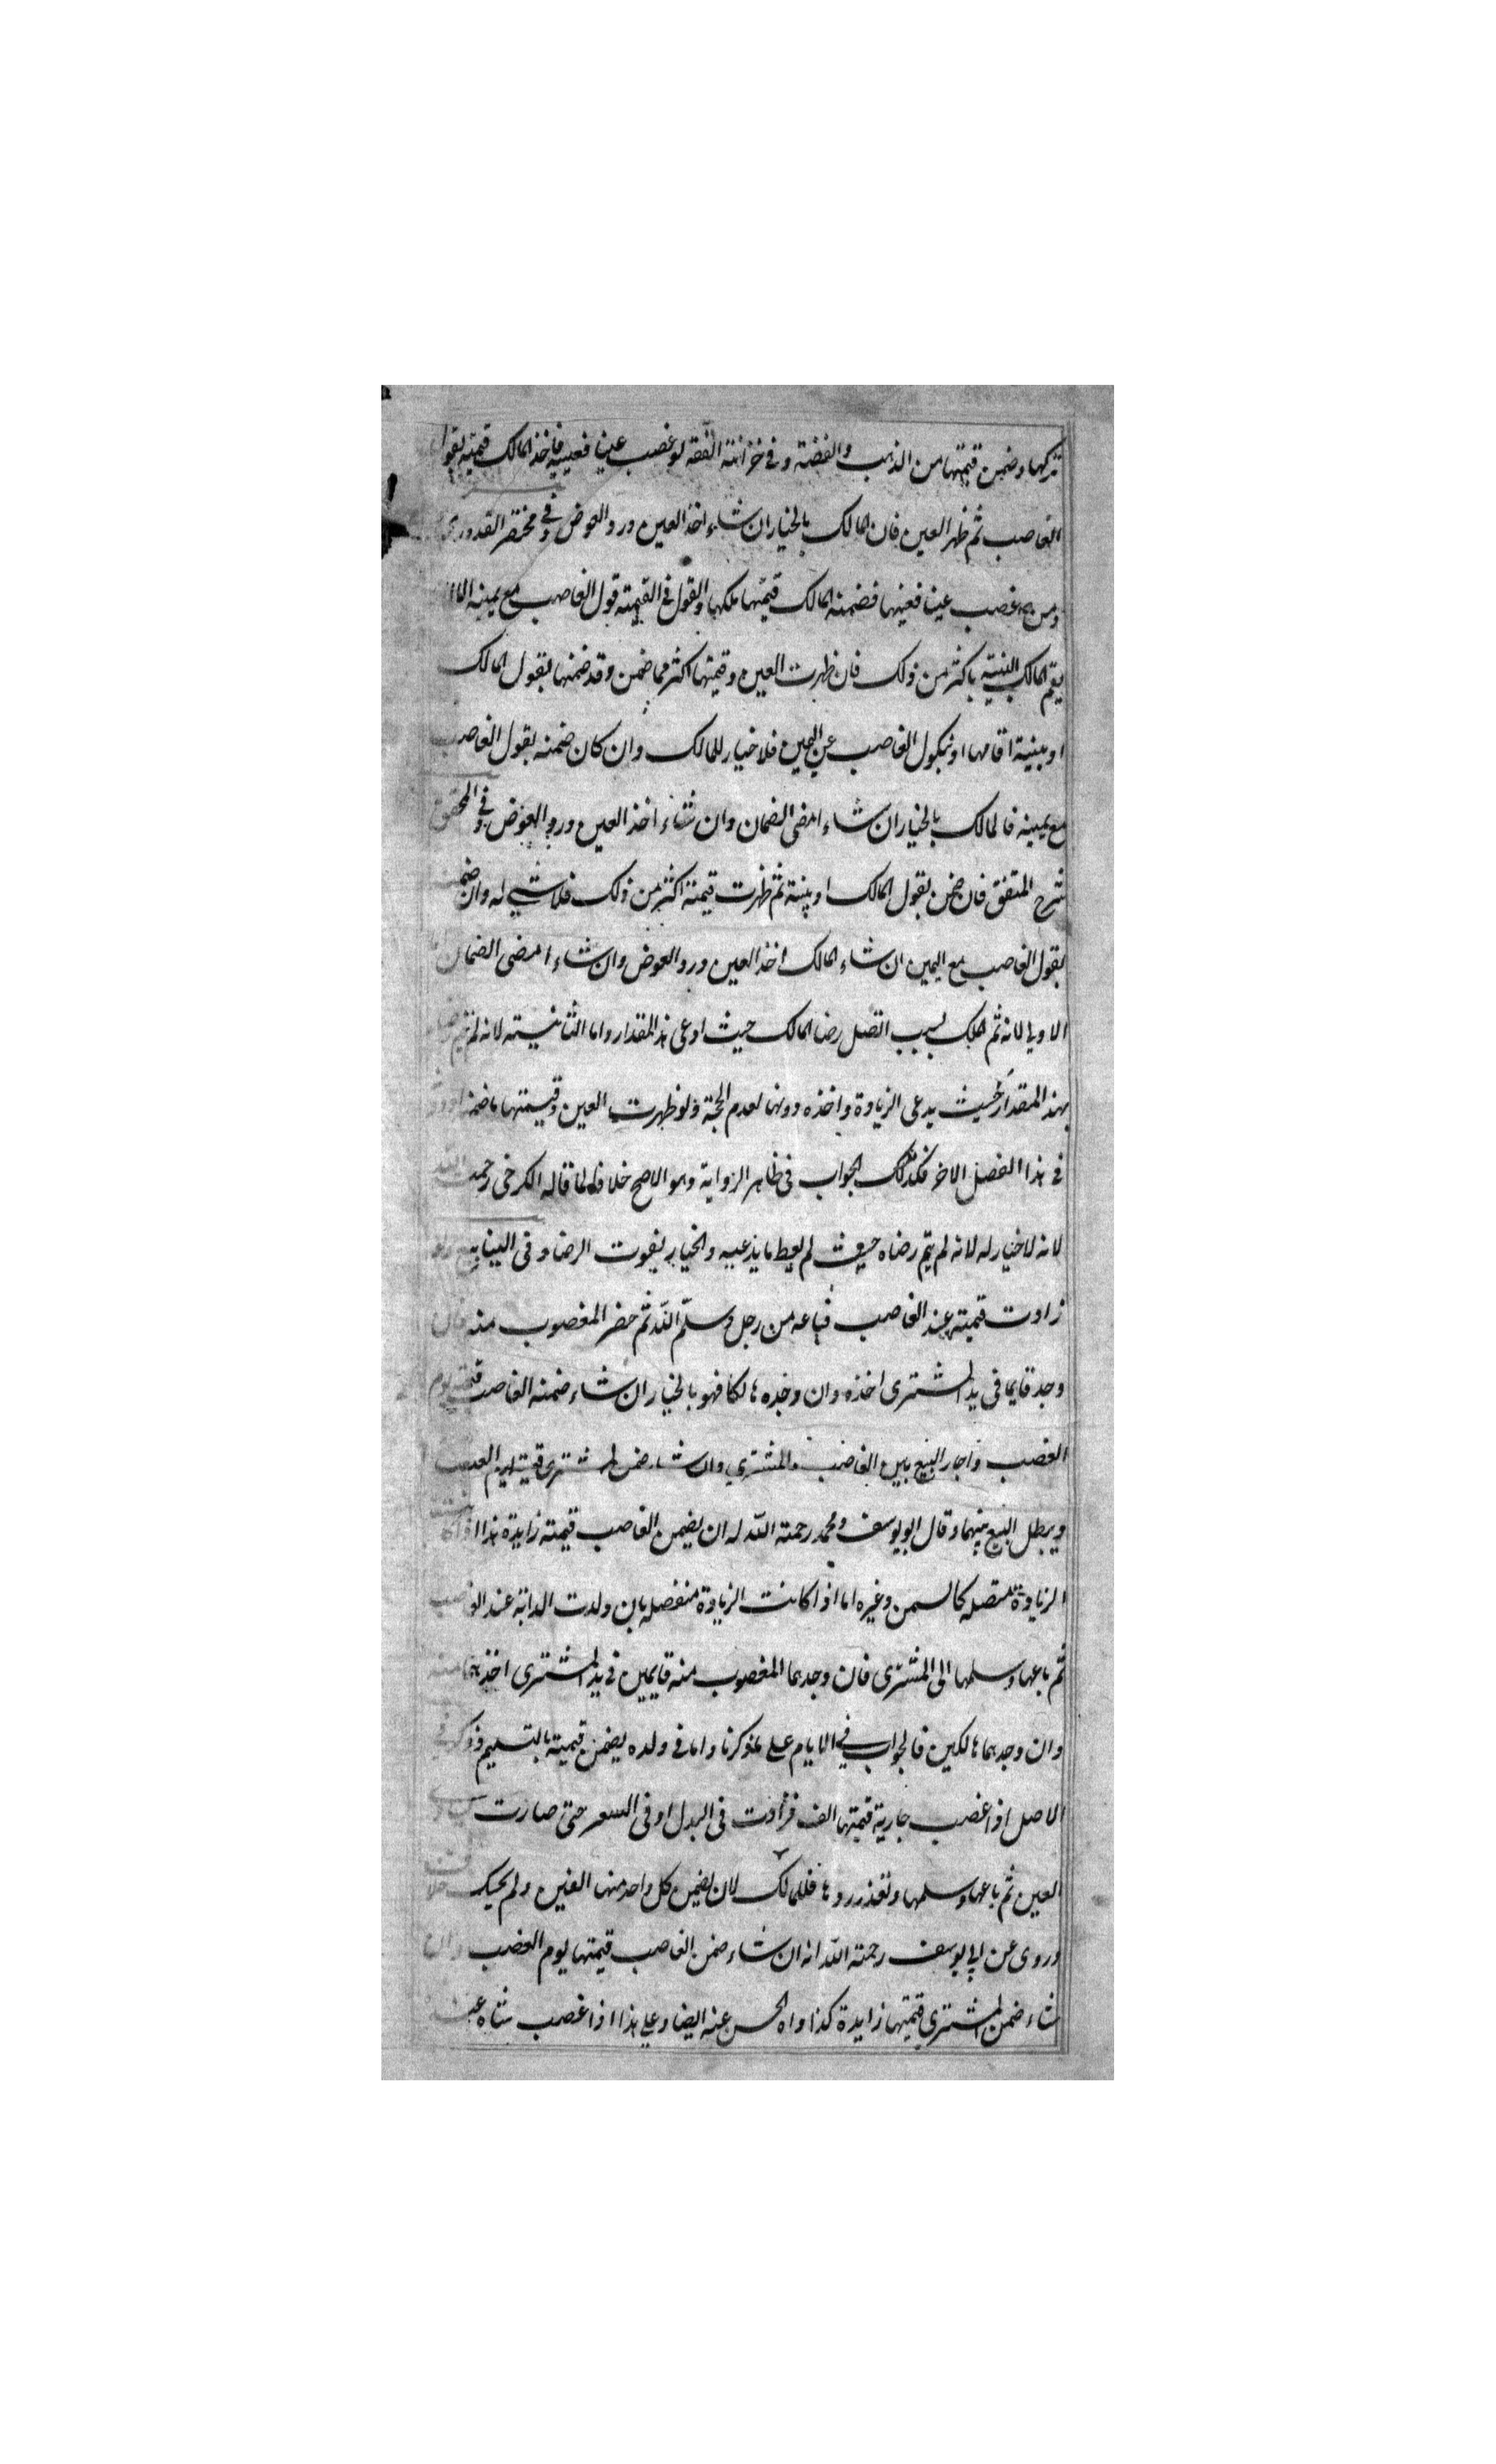 تركها وضمن قيمتها من الذهب والفضة وفي خزانة الفقه لو غصب عينا فعيبه فاخذ المالك قيمته بقول
الغاصب ثم ظهر العين فان المالك بالخيار ان شاء اخذ العين ورد العوض وفي مختصر القدوري
ومن غصب عينا فعيبها فضمنه المالك قيمتها ملكها والقول في القيمة قول الغاصب مع يمينه الا ان
يقيم المالك البينة باكثر من ذلك فان ظهرت العين وقيمتها اكثر مما ضمن وقد ضمنها بقول المالك
او ببينة اقامها او بنكول الغاصب عن اليمين فلا خيار للمالك وان كان ضمنه بقول الغاصب
مع يمينه فالمالك بالخيار ان شاء امضى الضمان وان شاء اخذ العين ورد العوض وفي المحقق
شرح المتفق فان ضمن بقول المالك او بينة ثم ظهرت قيمته اكثر من ذلك فلا شي له وان ضمن
بقول الغاصب مع اليمين ان شاء المالك اخذ العين ورد العوض وان شاء امضى الضمان
الاولى لانه ثم الملك بسبب اتصل رضا المالك حيث ادعى هذا المقدار واما الثانية لانه لم يتم
بهذا المقدار حيث يدعى الزيادة واخذه دونها لعدم الحجة ولو ظهرت العين وقيمتها ما ضمنه او دونه
في هذا الفصل الاخر فكذلك الجواب في ظاهر الرواية وهو الاصح خلافا لما قاله الكرخى رحمه الله
لانه لا خيار له لانه لم يتم رضاه حيث لم يعط ما يدعيه والخيار لفوت الرضا وفي الينابيع ولو
زادت قيمته عند الغاصب فباعه من رجل وسلم اليه ثم حضر المغصوب منه فان
وجد قايما في يد المشترى اخذه وان وجده هالكا فهو بالخيار ان شاء ضمنه الغاصب قيمته يوم
الغصب واجاز البيع بين الغاصب والمشترى وان شاء ضمن المشترى قيمته يوم القبض
ويبطل البيع بينهما وقال ابو يوسف ومحمد رحمة الله له ان يضمن الغاصب قيمته زايدة هذا اذا كانت
الزيادة متصله كالسمن وغيره اما اذا كانت الزيادة منفصله بان ولدت الدابة عند الغاصب
ثم باعها وسلمها الى المشترى فان وجدهما المغصوب منه قايمين في يد المشترى اخذهما منه
وان وجدهما هالكين فالجواب في الايام على ما ذكرنا واما في ولده يضمن قيمته بالتسليم وذكر في
الاصل اذا غصب جارية قيمتها الف فزادت في البدل او في السعر حتى صارت
العين ثم باعها وسلمها وتعذر ردها فللمالك لان يضمن كل واحد منها الفين ولم يحك خلا
وروى عن ابي يوسف رحمة الله انه ان شاء ضمن الغاصب قيمتها يوم الغصب وان
شاء ضمن المشترى قيمتها زايدة كذا رواه الحسن عنه ايضا وعلى هذا اذا غصب شاه